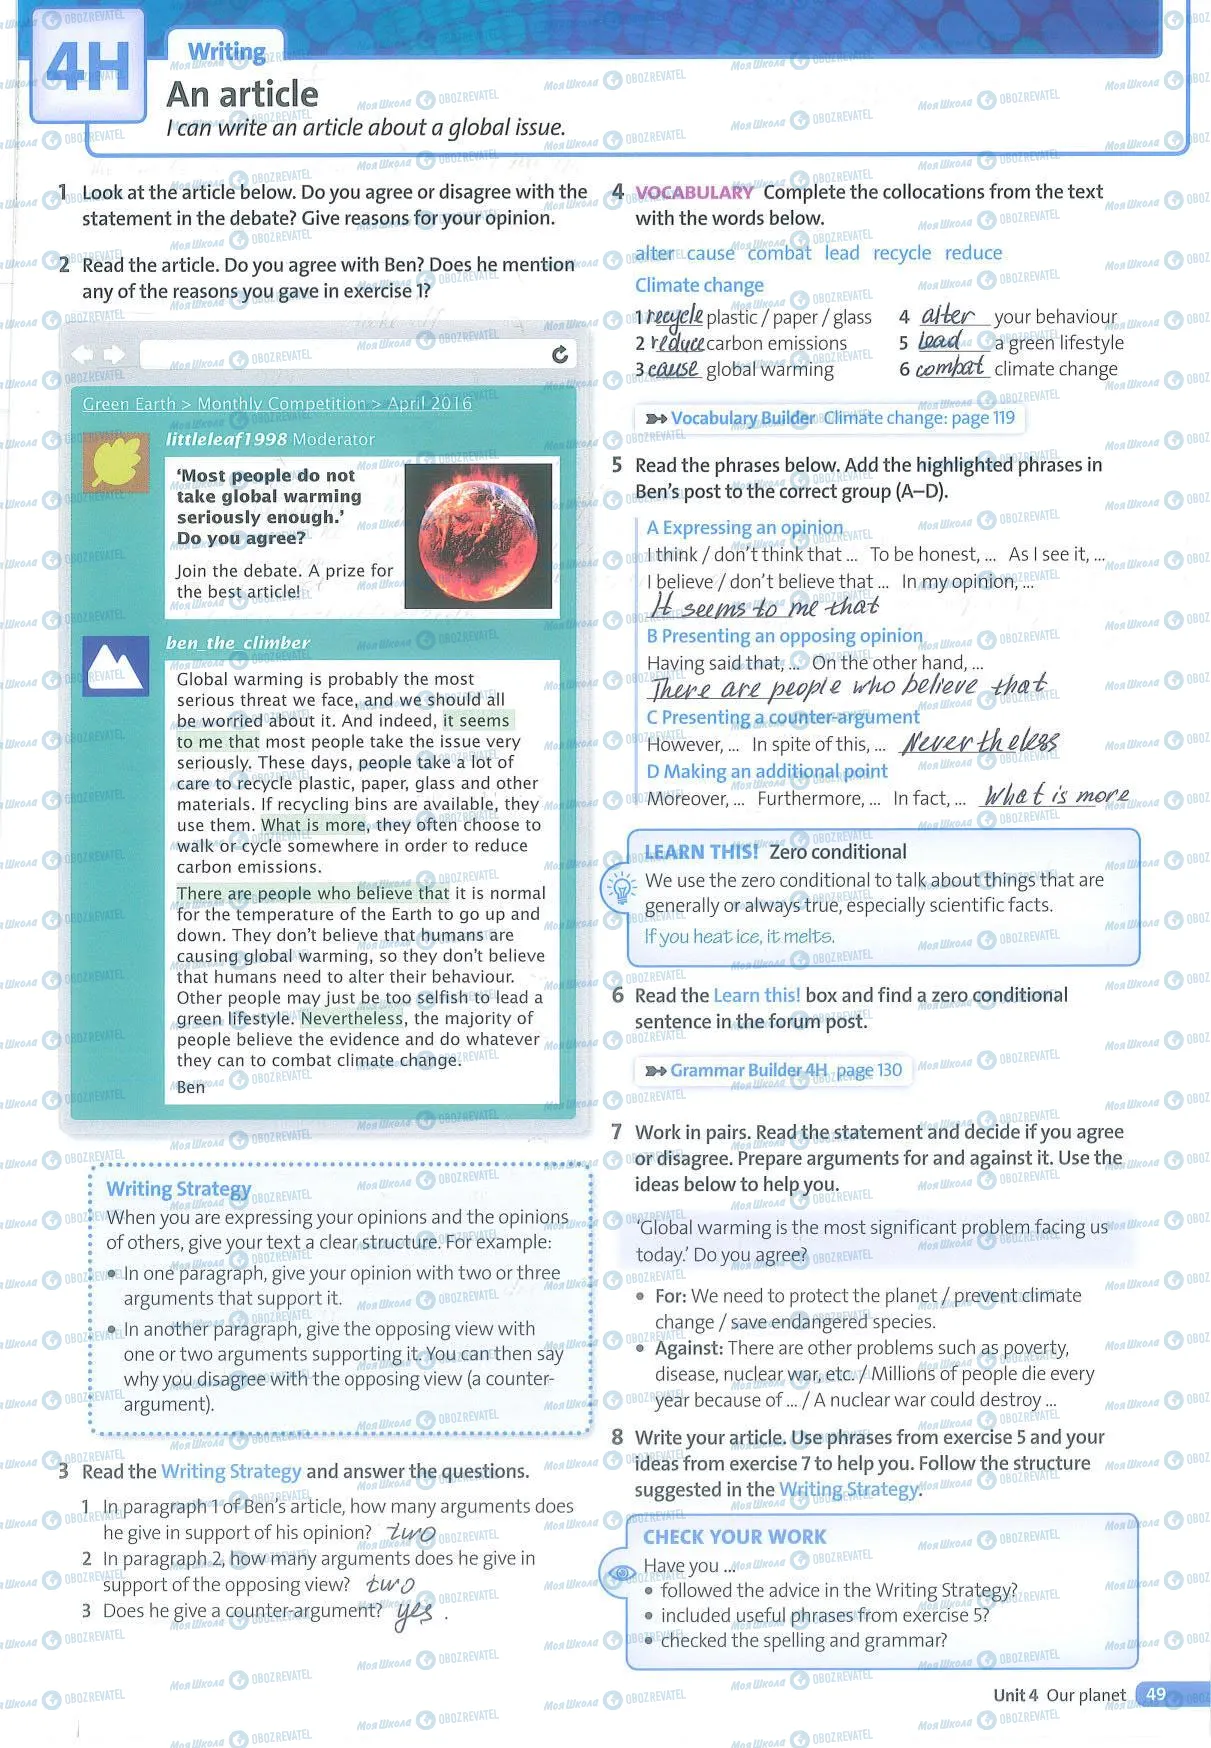 4H
Writing
An article
I can write an article about a global issue.
1 Look at the article below. Do you agree or disagree with the
statement in the debate? Give reasons for your opinion.
2 Read the article. Do you agree with Ben? Does he mention
any of the reasons you gave in exercise 1?
Green Earth > Monthly Competition > April 2016
littleleaf1998 Moderator
‘Most people do not
take global warming
seriously enough.’
Do you agree?
Join the debate. A prize for
the best article!
ben_the_climber
Global warming is probably the most
serious threat we face, and we should all
be worried about it. And indeed, it seems
to me that most people take the issue very
seriously. These days, people take a lot of
care to recycle plastic, paper, glass and other
materials. If recycling bins are available, they
use them. What is more, they often choose to
walk or cycle somewhere in order to reduce
carbon emissions.
There are people who believe that it is normal
for the temperature of the Earth to go up and
down. They don’t believe that humans are
causing global warming, so they don’t believe
that humans need to alter their behaviour.
Other people may just be too selfish to lead a
green lifestyle. Nevertheless, the majority of
people believe the evidence and do whatever
they can to combat climate change.
Ben
Writing Strategy
When you are expressing your opinions and the opinions
of others, give your text a clear structure. For example:
• In one paragraph, give your opinion with two or three
arguments that support it.
• In another paragraph, give the opposing view with
one or two arguments supporting it. You can then say
why you disagree with the opposing view (a counter-
argument).
3 Read the Writing Strategy and answer the questions.
1 In paragraph 1 of Ben’s article, how many arguments does
he give in support of his opinion? two
2 In paragraph 2, how many arguments does he give in
support of the opposing view? two
3 Does he give a counter-argument? yes.
4 VOCABULARY Complete the collocations from the text
with the words below.
alter cause combat lead recycle reduce
Climate change
1 recycle plastic / paper / glass
2 reduce carbon emissions
3 cause global warming
4 alter your behaviour
5 lead a green lifestyle
6 combat climate change
Vocabulary Builder Climate change: page 119
5 Read the phrases below. Add the highlighted phrases in
Ben’s post to the correct group (A–D).
A Expressing an opinion
I think / don’t think that ... To be honest, ... As I see it, ...
I believe / don’t believe that ... In my opinion, ...
It seems to me that
B Presenting an opposing opinion
Having said that, ... On the other hand, ...
There are people who believe that
C Presenting a counter-argument
However, ... In spite of this, ... Nevertheless
D Making an additional point
Moreover, ... Furthermore, ... In fact, ... What is more
LEARN THIS! Zero conditional
We use the zero conditional to talk about things that are
generally or always true, especially scientific facts.
If you heat ice, it melts.
6 Read the Learn this! box and find a zero conditional
sentence in the forum post.
Grammar Builder 4H page 130
7 Work in pairs. Read the statement and decide if you agree
or disagree. Prepare arguments for and against it. Use the
ideas below to help you.
‘Global warming is the most significant problem facing us
today.’ Do you agree?
• For: We need to protect the planet / prevent climate
change / save endangered species.
• Against: There are other problems such as poverty,
disease, nuclear war, etc. / Millions of people die every
year because of ... / A nuclear war could destroy ...
8 Write your article. Use phrases from exercise 5 and your
ideas from exercise 7 to help you. Follow the structure
suggested in the Writing Strategy.
CHECK YOUR WORK
Have you ...
• followed the advice in the Writing Strategy?
• included useful phrases from exercise 5?
• checked the spelling and grammar?
Unit 4 Our planet 49
Моя Школа OBOZREVATEL